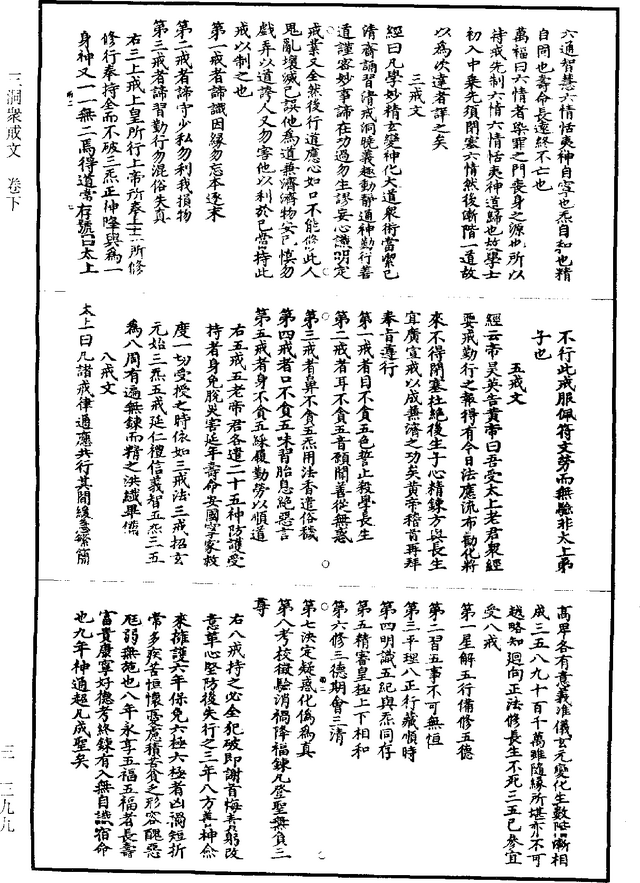 三洞衆戒文　卷下
六通智慧六情恬夷神自寧也炁自和也精
自固也壽命長遠終不亡也
萬福曰六情者染罪之門喪身之源也所以
持戒先制六情六情恬夷神道歸也故學士
初入中乗先須閉塞六情然後漸階一道故
以為次達者詳之矣
三戒文
經曰凡學妙精玄變神化大道衆術當絜己
清齋誦習清戒洞曉義趣動靜通神勤行善
道謹密妙事諦在功過勿生謬妄心識明定
戒業又全然後行道應心如口不能修此人
鬼亂壞滅已誤他為道無濟濟物安己慎勿
戲弄以道誇人又勿害他以利於己當持此
戒以制之也
第一戒者諦識因縁勿忘本逐末
第二戒者諦守少私勿利我損物
第三戒者諦習勤行勿混俗失真
右三上戒上皇所行上帝所奉上士所修
修行奉持全而不破三炁正神降與為一
身神又一一無二焉得道常存號曰太上
不行此戒服佩符文勞而無驗非太上弟
子也
五戒文
經云帝吴英告黄帝曰吾受太上老君衆經
要戒勤行之報得有今日法應流布勸化將
來不得閉塞杜絶後生子心精錬方與長生
宜廣宣戒以成兼濟之功矣黄帝稽首再拜
奉旨遵行
第一戒者目不貪五色誓止殺學長生
第二戒者耳不貪五音願聞善從無惑
第三戒者鼻不貪五炁用法香遣俗穢
第四戒者口不貪五味習胎息絶惡言
第五戒者身不貪五綵履勤勞以順道
右五戒五老帝君各遣二十五神防護受
持者身免脱災害延年壽命安國寧家救
度一切受授之時依如三戒法三戒招玄
元始三炁五戒延仁禮信義智五炁三五
為八周有遍無錬而精之洪纖畢濡
八戒文
太上曰凡諸戒律通應共行其間緩急繁簡
高卑各有意義准儀玄元變化生數階漸相
成三五八九十百千萬雖隨縁所堪亦不可
越略知迴向正法修長生不死三五已參宜
受八戒
第一星解五行備修五德
第二習五事不可無恒
第三平理八正行藏順時
第四明識五紀與炁同存
第五精審皇極上下相和
第六修三德期會三清
第七決定疑惑化偽為真
第八考校徵驗消禍降福錬凡登聖無負三
尊
右八戒持之必全犯破即謝首悔責躬改
意革心堅防後失行之三年八方善神僉
來擁護六年保免六極六極者凶禍短折
常多疾苦恒懷憂慮積苦貧之形容醜惡
尪弱無施也八年永享五福五福者長壽
富貴康寧好德考終錬有入無自識宿命
也九年神通超凡成聖矣
三一三九九